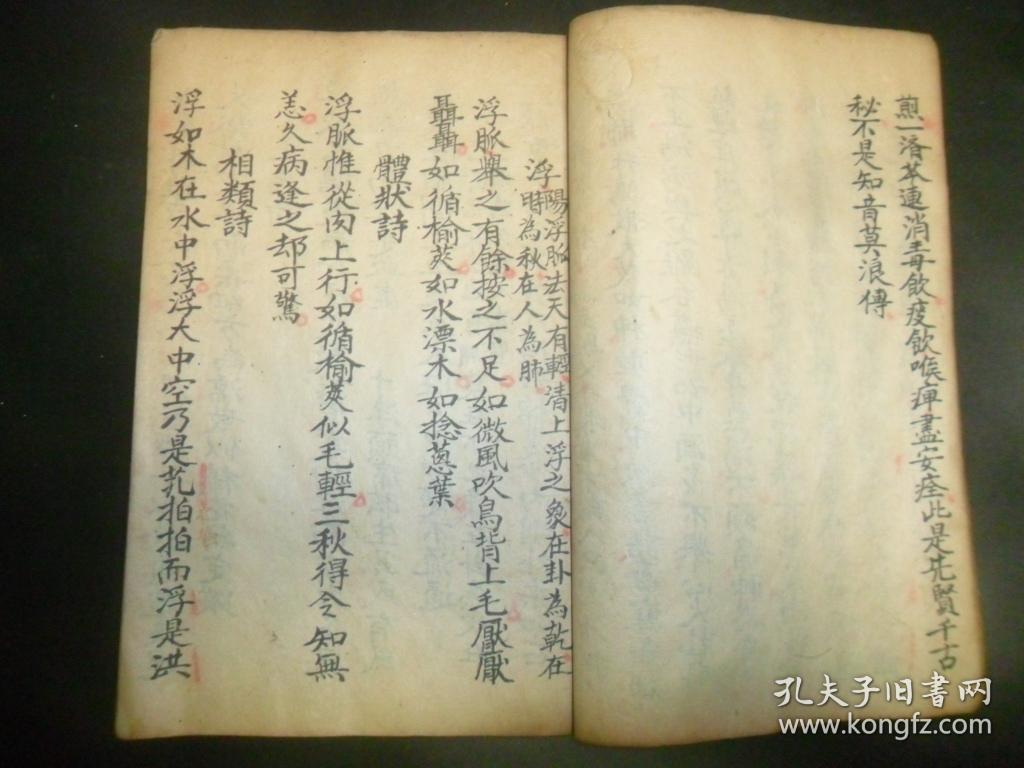 煎一洛茶連消毒飲疫飲喉痺盡安痊此是先賢千古
秘不是知音莫浪傳
浮陽浮脈法天有輕清上浮之象在卦為乾在
時為秋在人為肺
浮脈舉之有餘按之不足如微風吹鳥背上毛厭厭
聶聶如循榆莢如水漂木如捻蔥葉
體狀詩
浮脈惟從肉上行如循榆莢似毛輕三秋得令知無
恙久病逢之却可驚
相類詩
浮如木在水中浮浮大中空乃是芤拍拍而浮是洪
孔夫子旧书网
www.kongfz.com